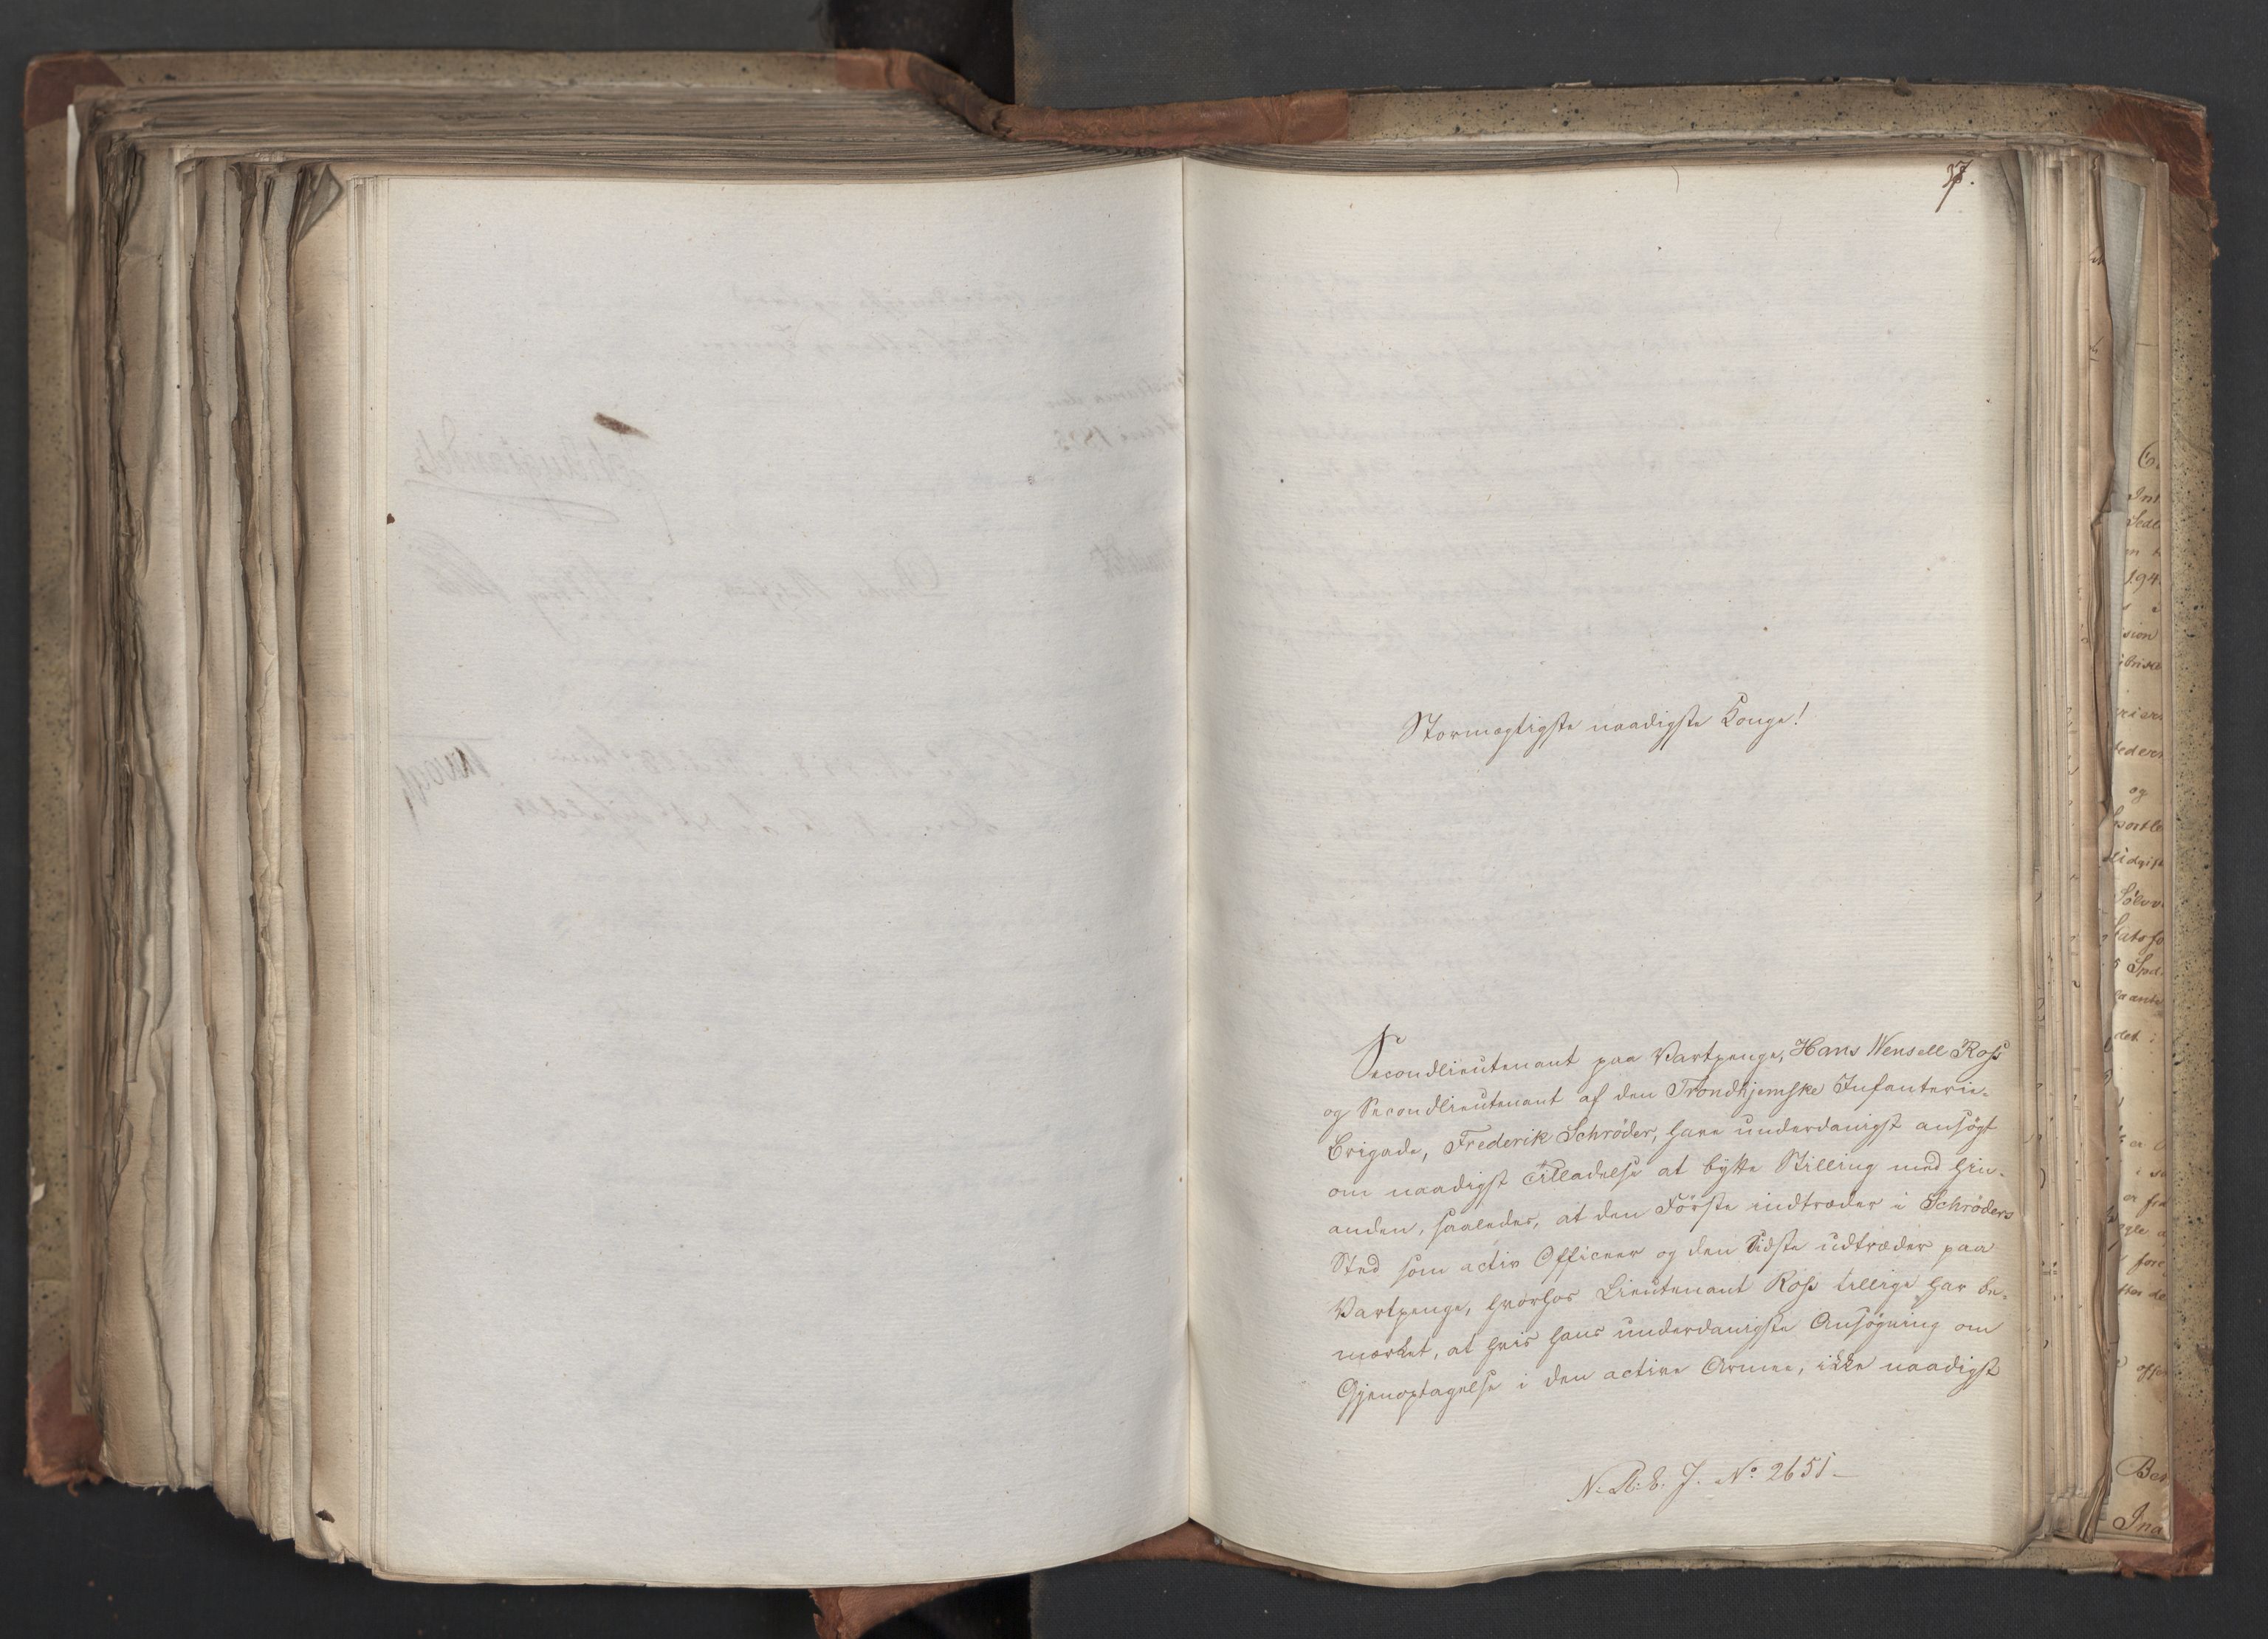 37.
Stormægtigste naadigste Konge!
Secondlieutenant paa Vartpenge, Hans Wensell Ross
og Secondlieutenant af den Trondhjemske Infanterie-
Brigade, Frederik Schrøder, have underdanigst ansøgt
om naadigst Tilladelse at bytte Stilling med hin-
anden, saaledes, at den Første indtræder i Schrøders
Sted som activ Officeer og den Sidste udtræder paa
Vartpenge, hvorhos Lieutenant Ross tillige har be-
mærket, at hvis hans underdanigste Ansøgning om
Gjenoptagelse i den active Armee, ikke naadigst
N. R. S. J. No. 2651